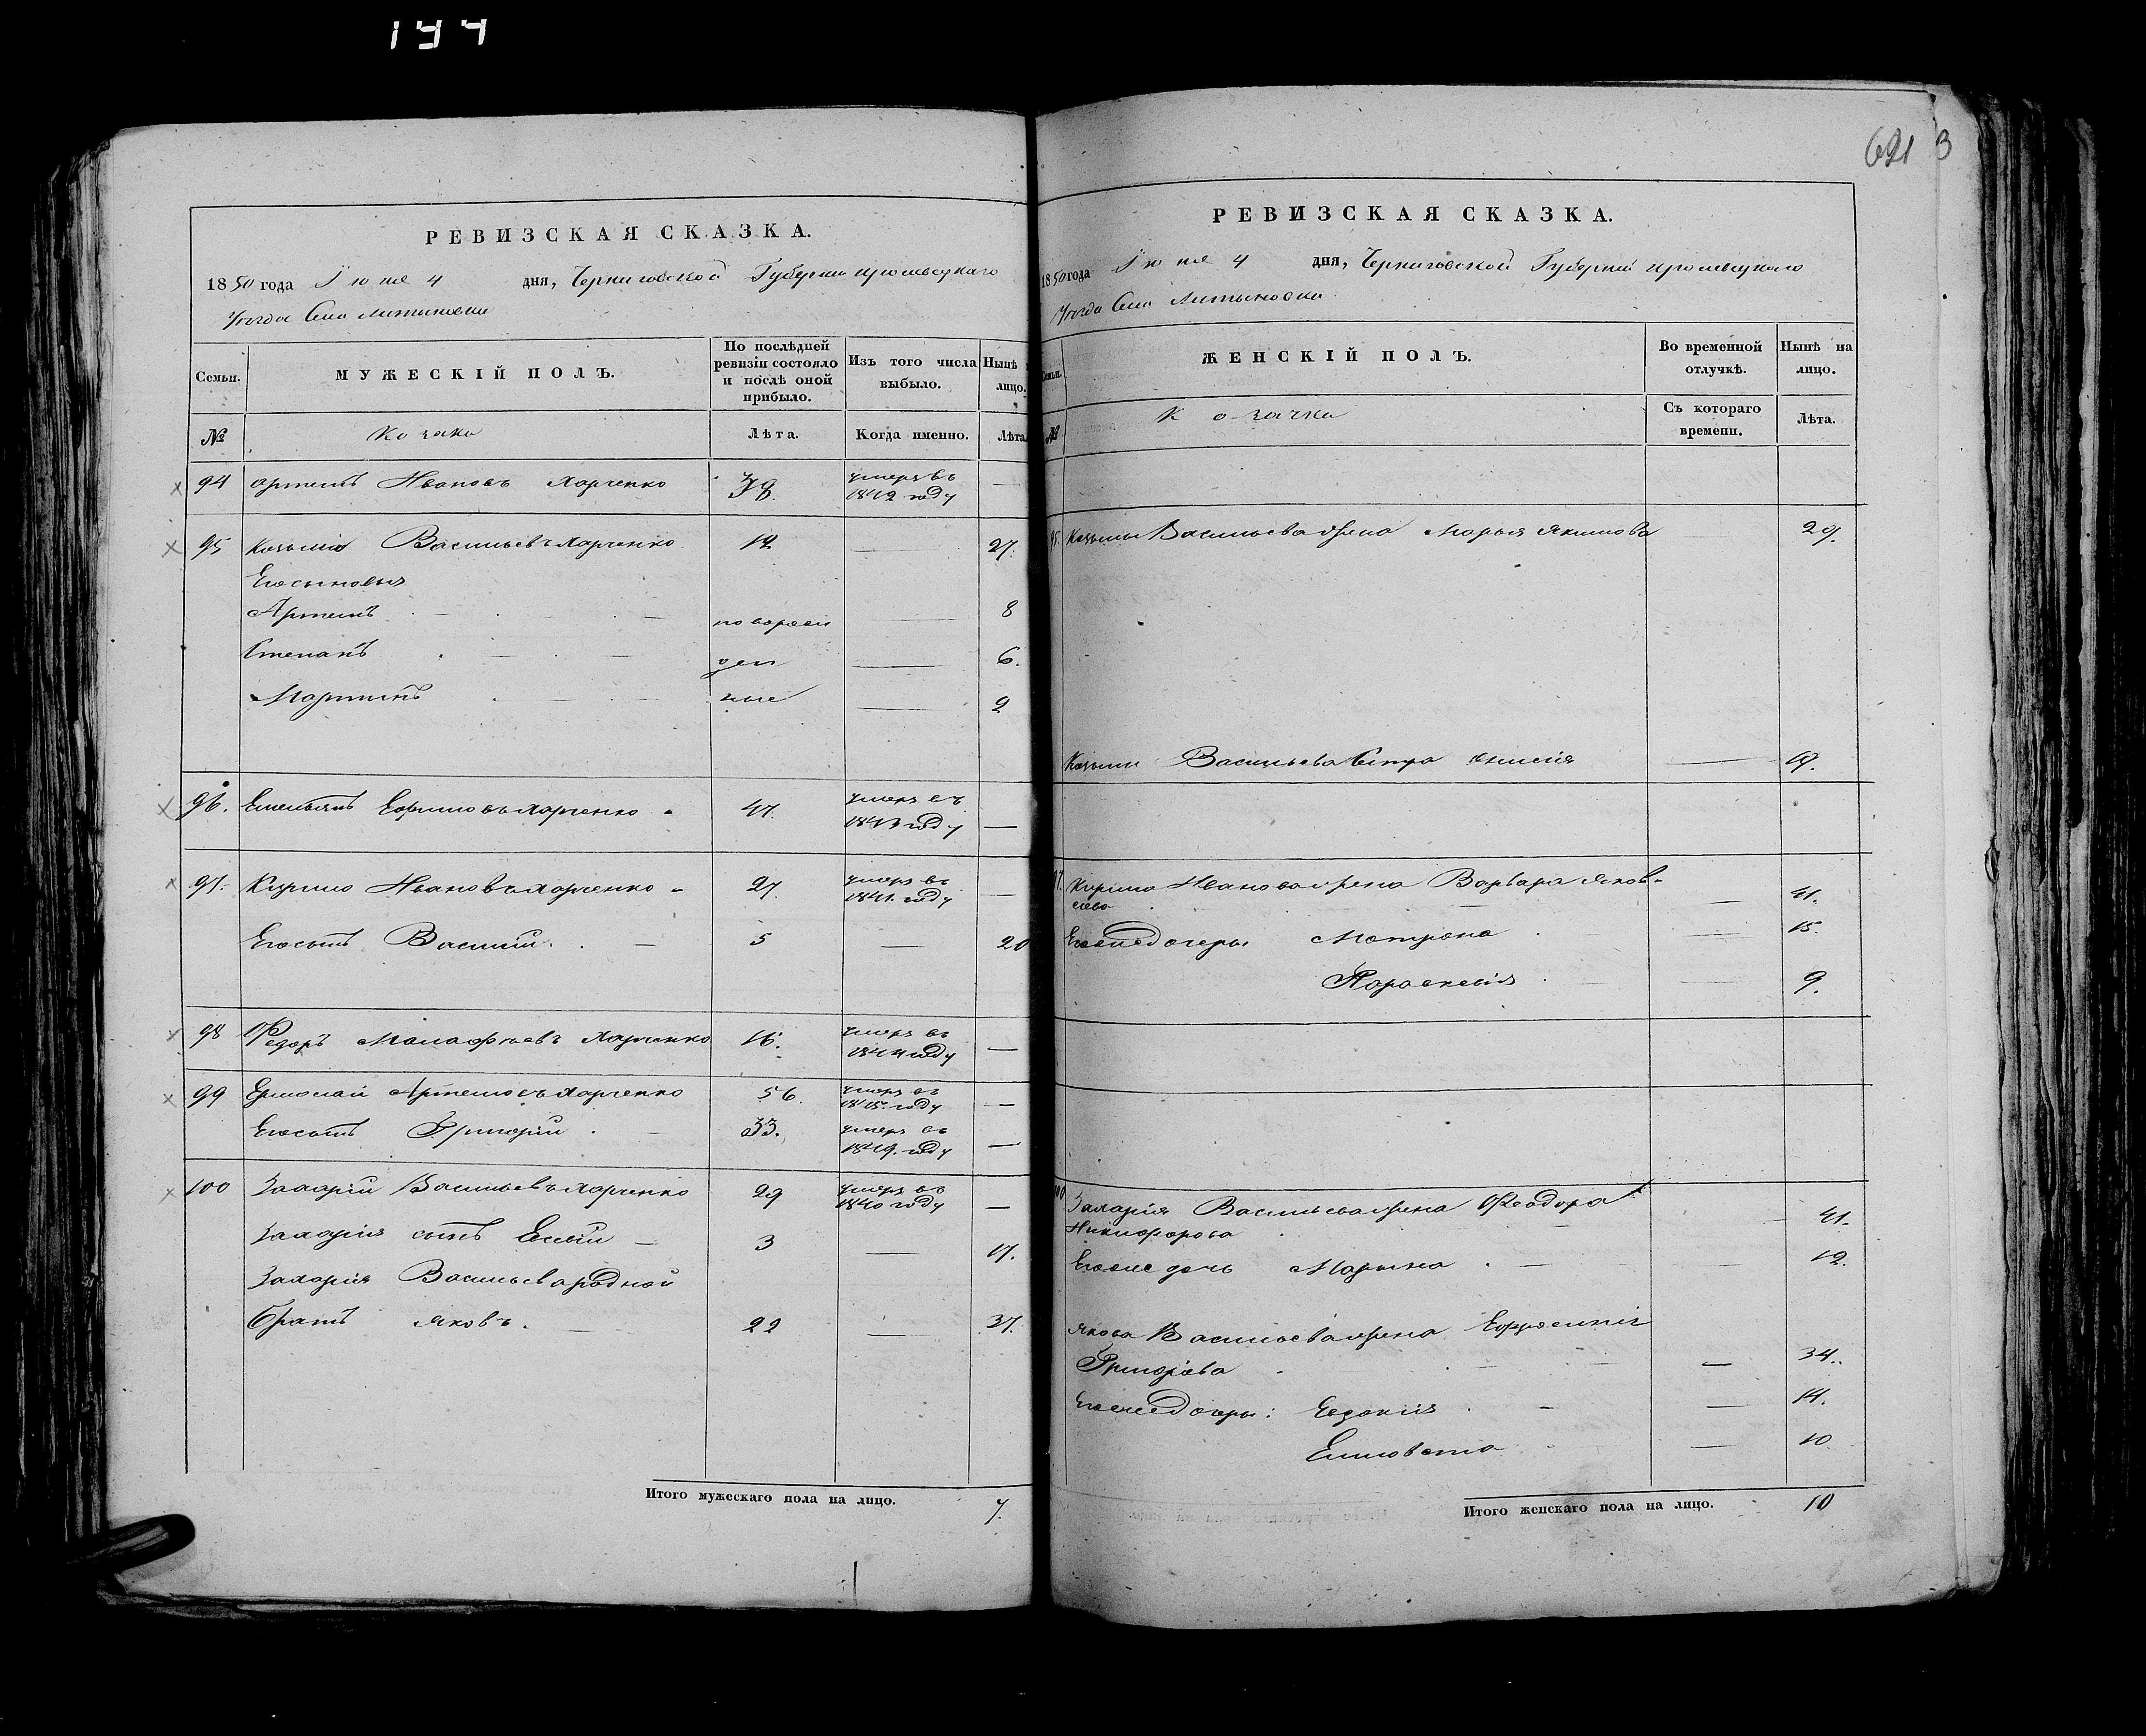 144
РЕВИЗСКАЯ СКАЗКА.
1850 года Іюня 4 дня, Черниговской Губерніи Кролевецкаго
Уѣзда Села Литвиновки
Семьи. МУЖЕСКІЙ ПОЛЪ. По послѣдней ревизіи состояло и послѣ оной прибыло. Изъ того числа выбыло. Нынѣ на лицо.
№ Козаки Лѣта. Когда именно. Лѣта.
94 Артемъ Ивановъ Харченко 38. умеръ въ
1842 году —
95 Козьма Васильевъ Харченко 12 — 27.
Его сыновья
Артемъ — новорож — 8
Степанъ — ден — 6.
Мартинъ — ные — 2
96. Емельянъ Ефимовъ Харченко 47. умеръ въ
1843 году —
97. Кирило Ивановъ Харченко 27. умеръ въ
1841. году —
Его сынъ Василій — 5 — 20
98 Федоръ Малафѣевъ Харченко 16. умеръ въ
1844 году —
99 Ермолай Артемовъ Харченко 56. умеръ въ
1845. году —
Его сынъ Григорій — 33. умеръ въ
1849. году —
100 Захарій Васильевъ Харченко 29 умеръ въ
1840 году —
Захарія сынъ Евсей — 3 — 17.
Захарія Васильева родной
братъ Яковъ. — 22 — 37.
Итого мужескаго пола на лицо. 7.
621 3
РЕВИЗСКАЯ СКАЗКА.
1850 года Іюня 4 дня, Черниговской Губерніи Кролевецкаго
Уѣзда Села Литвиновки
Семьи. ЖЕНСКІЙ ПОЛЪ. Во временной отлучкѣ. Нынѣ на лицо.
№ Козачки Съ котораго времени. Лѣта.
95. Козьмы Васильева жена Марья Якимова 29.
Козьмы Васильева сестра — 17.
97. Кирила Иванова жена Варвара Яков-
лева — — 41.
Его же дочери Матрона — 15.
Параскевія — 9.
100 Захарія Васильева жена Феодора
Никифорова — — 41.
Его же дочь Марина — — 12.
Якова Васильева жена Ефросинія
Григорьева — — 34.
Его же дочери: Евдокія — — 14.
Елисовета — 10
Итого женскаго пола на лицо. 10